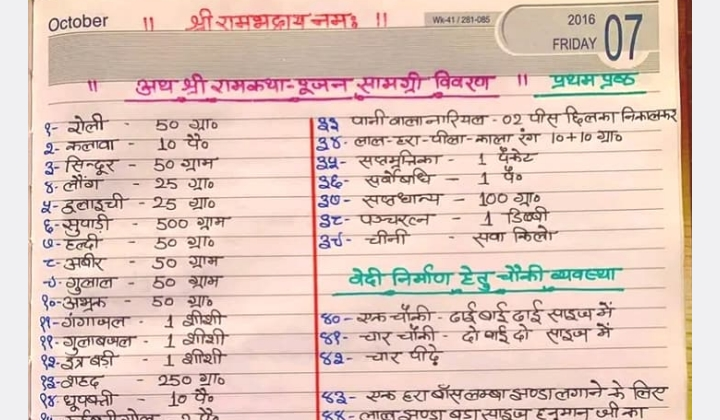 October
Wk-41 / 281-085
2016
FRIDAY 07
॥ श्री रामभद्राय नमः ॥
॥ अथ श्री रामकथा-पूजन सामग्री विवरण ॥ प्रथम प्रष्ठ
१- रोली - 50 ग्रा०
२- कलावा - 10 पै०
३- सिन्दूर - 50 ग्राम
४- लौंग - 25 ग्रा०
५- इलाइची - 25 ग्रा०
६- सुपाड़ी - 500 ग्राम
७- हल्दी - 50 ग्रा०
८- अबीर - 50 ग्राम
९- गुलाल - 50 ग्राम
१०- अभ्रक - 50 ग्रा०
११- गंगाजल - 1 शीशी
११- गुलाबजल - 1 शीशी
१२- इत्र बड़ी - 1 शीशी
१३- शहद - 250 ग्रा०
१४- धूपबत्ती - 10 पै०
३३ पानी वाला नारियल - 02 पीस छिलका निकालकर
३४- लाल-हरा-पीला-काला रंग 10+10 ग्रा०
३५- सप्तमृत्तिका - 1 पैकेट
३६- सर्वोषधि - 1 पै०
३७- सप्तधान्य - 100 ग्रा०
३८- पञ्चरत्न - 1 डिब्बी
३९- चीनी - सवा किलो
वेदी निर्माण हेतु चौकी व्यवस्था
४०- एक चौकी - ढाई बाई ढाई साइज में
४१- चार चौकी - दो बाई दो साइज में
४२- चार पीढ़े
४३- एक हरा बाँस लम्बा झण्डा लगाने के लिए
४४- लाल झण्डा बड़ा साइज हनुमान जी का